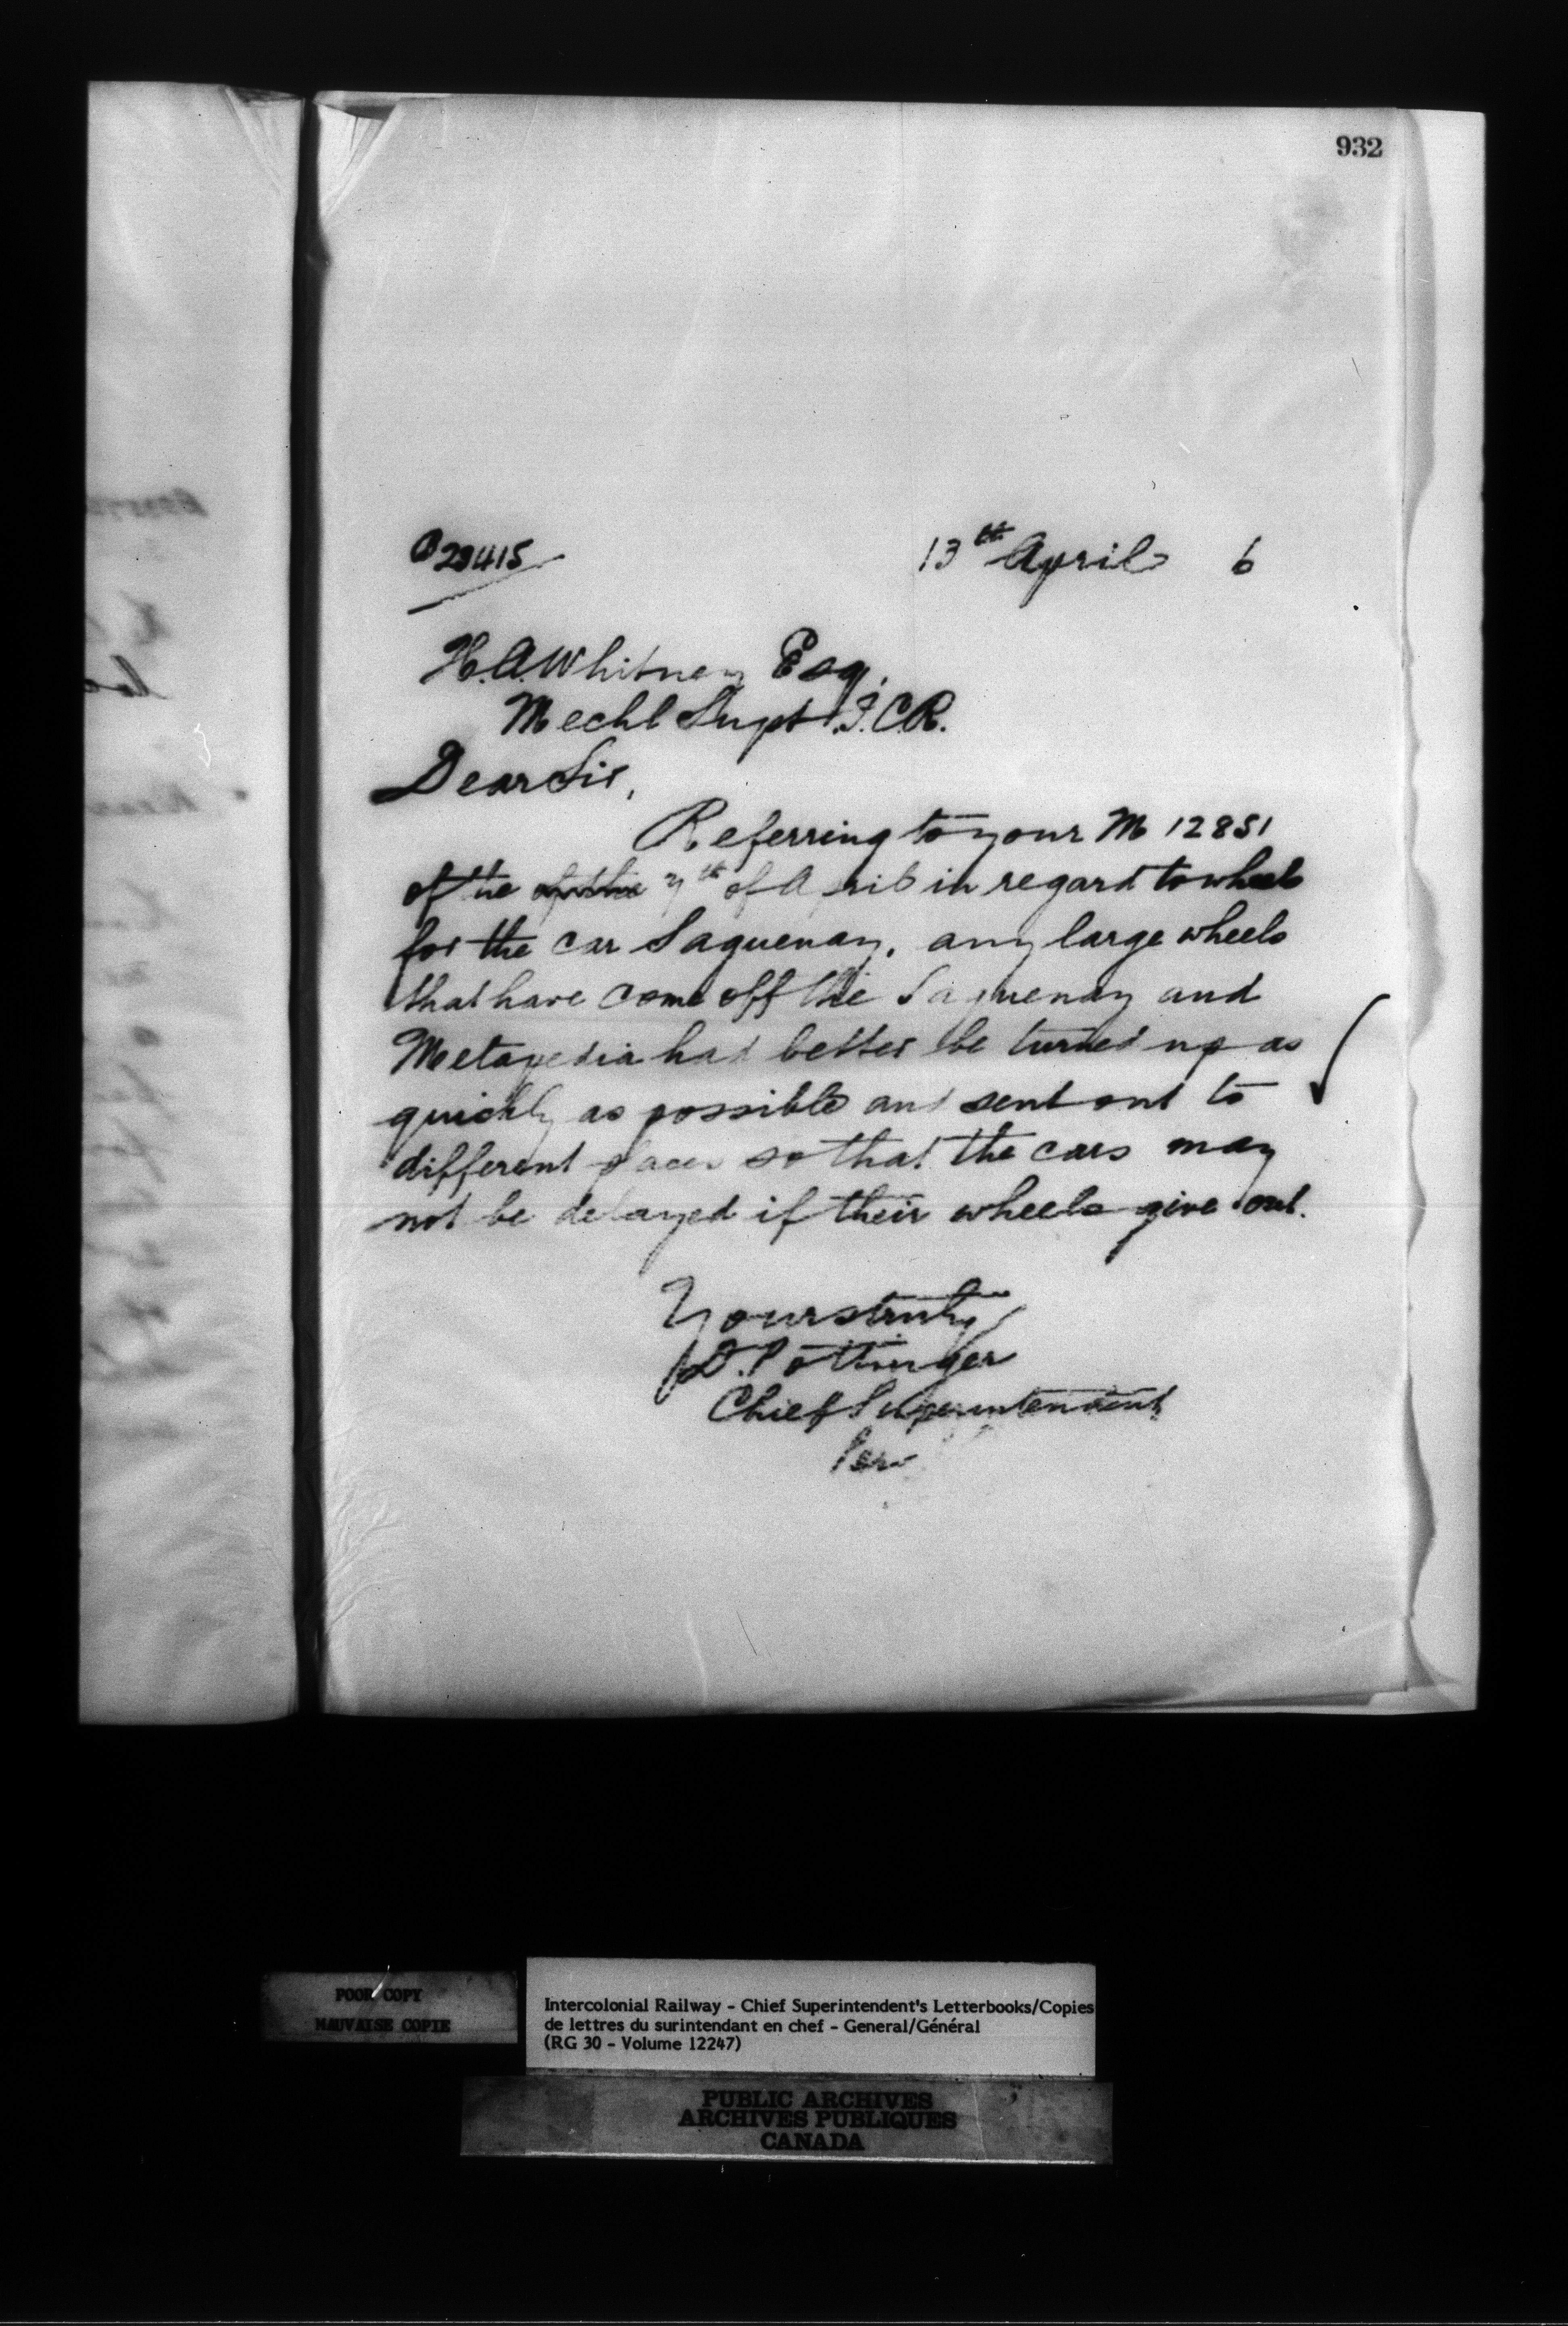 932
O 23415
13th April 6
H.A. Whitney Esq.
Mechl Supt I.C.R.
Dear Sir,
Referring to your M 12851
of the of the 7th of April in regard to wheels
for the car Saguenay. any large wheels
that have come off the Saguenay and
Metapedia had better be turned up as
quickly as possible and sent out to
different places so that the cars may
not be delayed if their wheels give out.
Yours truly
D. Pottinger
Chief Superintendent
Per
POOR COPY
MAUVAISE COPIE
Intercolonial Railway - Chief Superintendent's Letterbooks/Copies
de lettres du surintendant en chef - General/Général
(RG 30 - Volume 12247)
PUBLIC ARCHIVES
ARCHIVES PUBLIQUES
CANADA